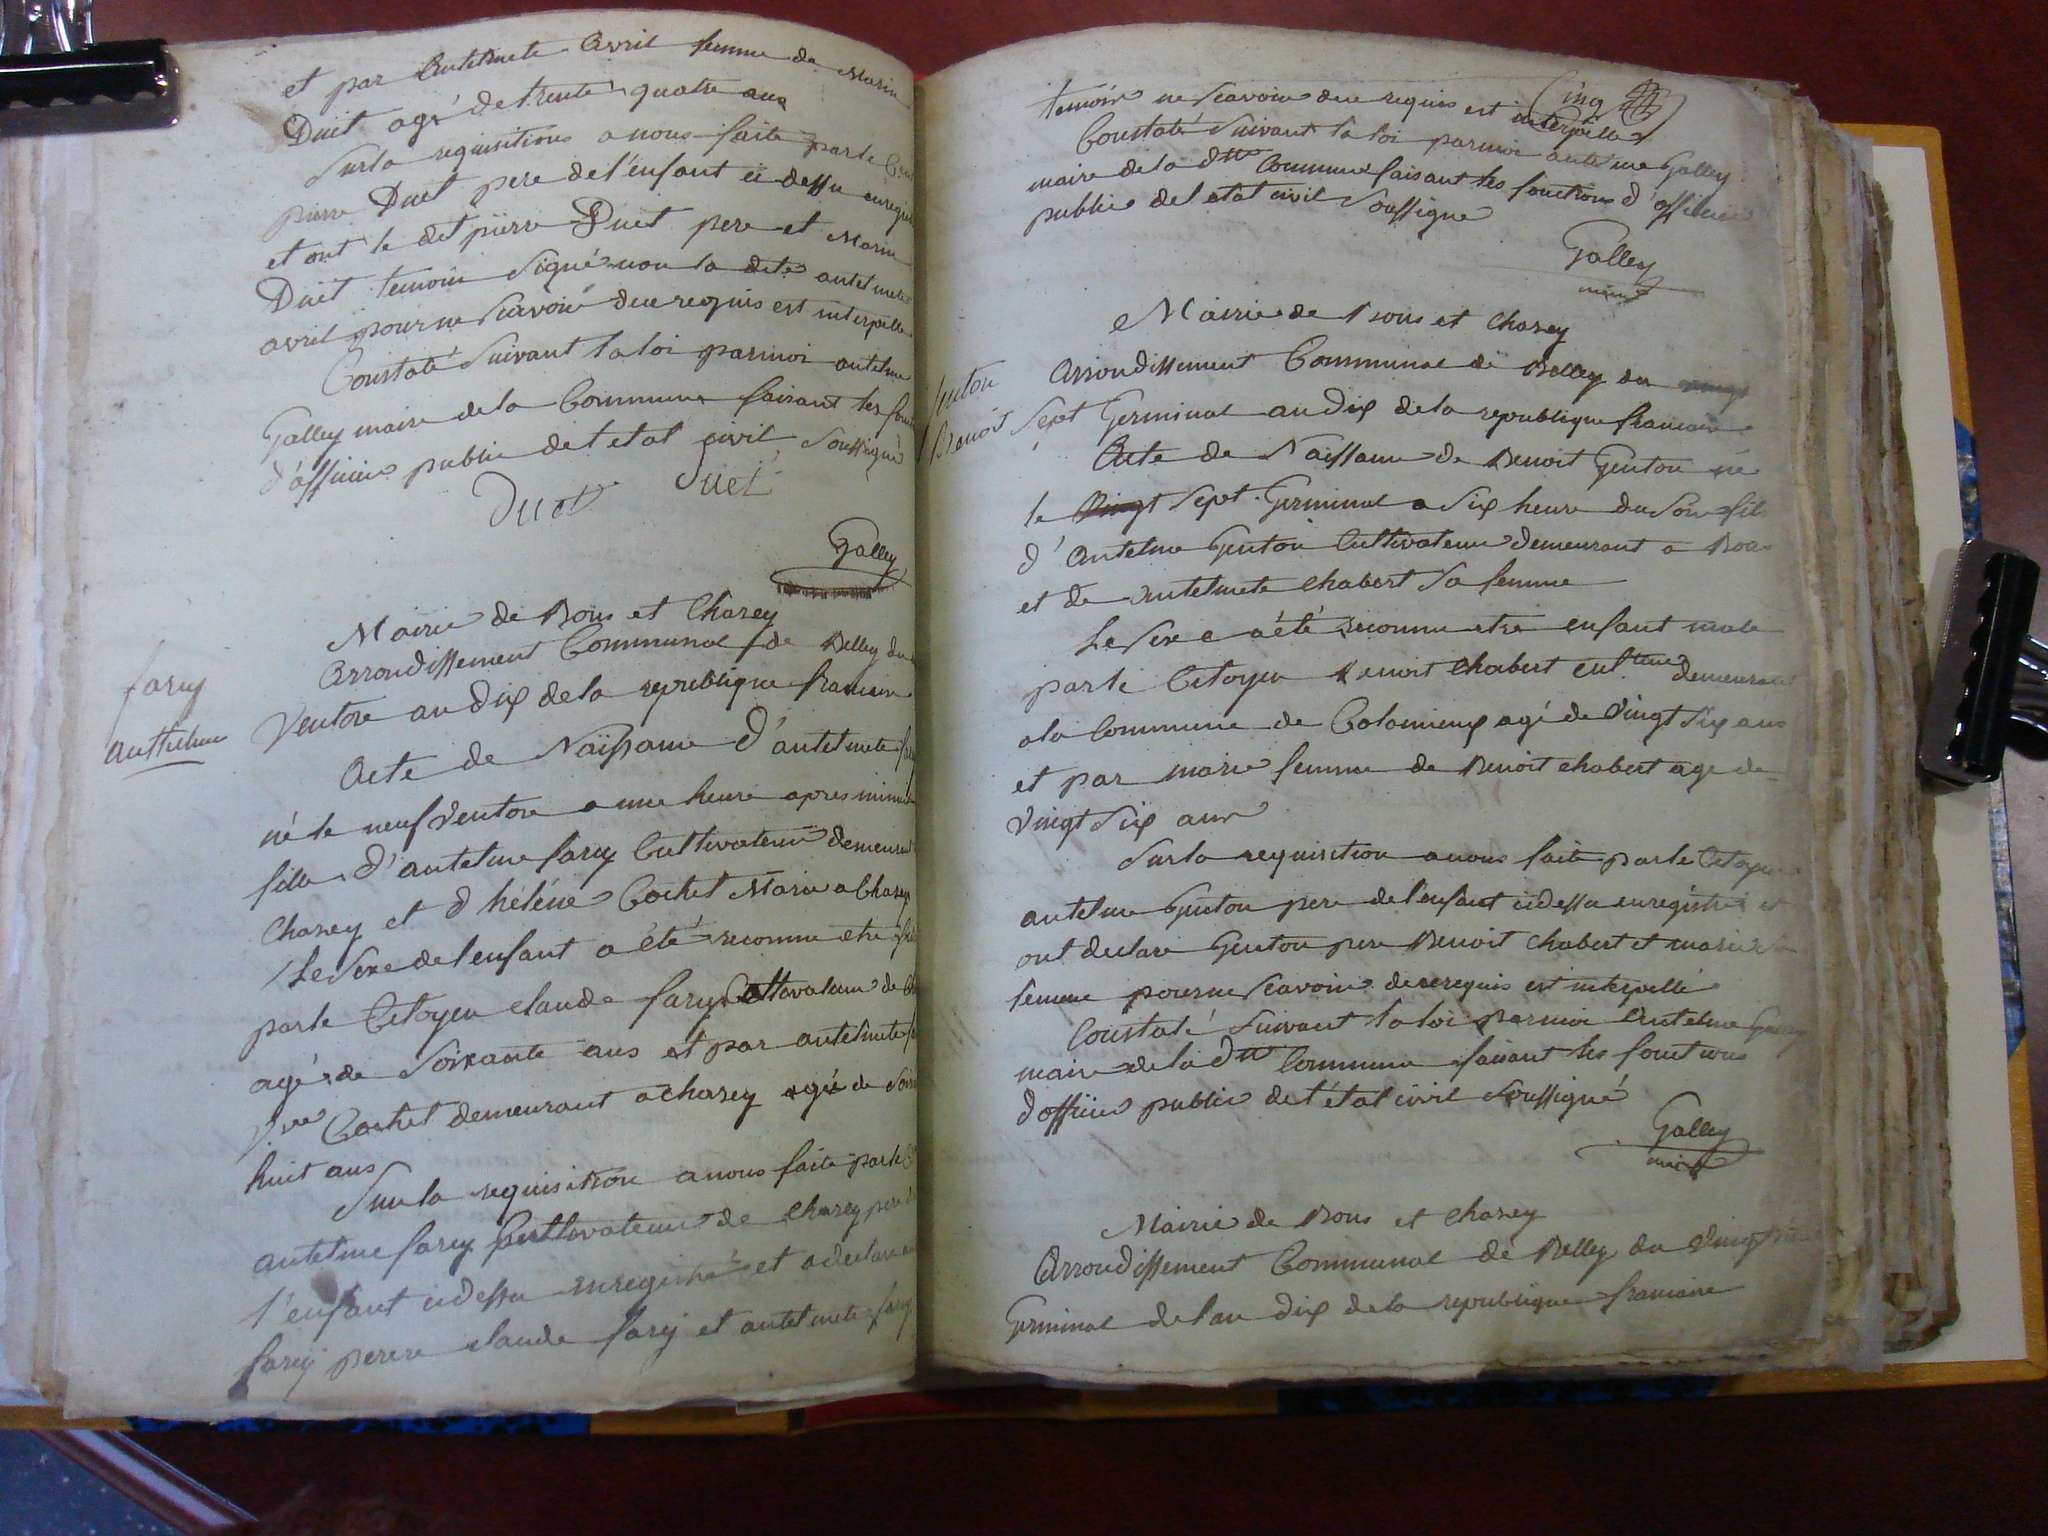 et par Antelmete Avril femme de Marin
Duet agé de trente quatre ans
Sur la requisitions a nous faite par le
pierre Duet pere de l'enfant ci dessu
et ont le dit pierre Duet pere et Marin
Duet temoin Signé non la dite antelmete
avril pour ne Scavoir de ce requis est interpellé
Constaté Suivant la loi par moi antelme
Galley maire de la Commune faisant les
d'officier public de l'etat civil Soussigné
Duet Duet
Galley
Mairie de Bons et Chasey
Arrondissement Communal de Belley du
Ventose an dix de la republique francaise
farcy
anthelme
Acte de Naissance d'antelmete
né le neuf Ventose a une heure apres minuit
fille d'antelme farcy Cultivateur demeurant
Chasey et d'héléne Cochet Marié a Chasey
Le Sexe de l'enfant a été reconnu etre
par le Citoyen claude farcy Cultivateur de
agé de Soixante ans et par antelmete
Vve Cochet demeurant a chasey agée de
huit ans
Sur la requisition a nous faite par le
antelme farcy Cultivateur de Chasey pere de
l'enfant ci dessu enregistré et a declaré
farcy pere claude farcy et antelmete farcy
Cinq
temoin ne Scavoir de ce requis est interpellé
Constaté Suivant la loi par moi antelme Galley
maire de la dtte Commune faisant les fonctions d'officier
public de l'etat civil Soussigné
Galley
maire
Mairie de Bons et Chasey
Arrondissement Communal de Belley du
Genton
Benoit
Sept Germinal an dix de la republique francaise
Acte de Naissance de Benoit Genton né
le Vingt Sept Germinal a Six heure du Soir fils
d'Antelme Genton Cultivateur demeurant a Bons
et de Antelmete Chabert Sa femme
Le Sexe a été reconnu etre enfant male
par le Citoyen Benoit Chabert cultteur demeurant
a la Commune de Colomieux agé de Vingt Six ans
et par marie femme de Benoit chabert age de
Vingt Six ans
Sur la requisition a nous faite par le Citoyen
antelme Genton pere de l'enfant ci dessu enregistré et
ont declaré Genton pere Benoit chabert et marie sa
femme pour ne Scavoir de ce requis est interpellé
Constaté Suivant la loi par moi Antelme Galley
maire de la dtte Commune faisant les fonctions
d'officier public de l'état civil Soussigné
Galley
maire
Mairie de Bons et Chasey
Arrondissement Communal de Belley du Vingt
Germinal de l'an dix de la republique francaise